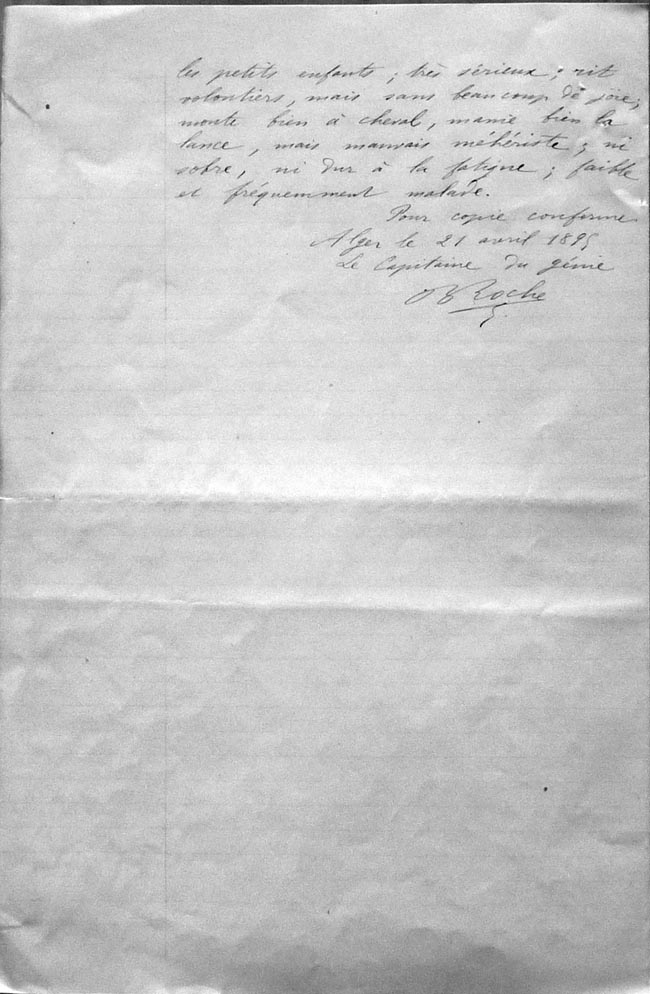 les petits enfants ; très sérieux ; rit
volontiers, mais sans beaucoup de joie ;
monte bien à cheval, manie bien la
lance, mais mauvais méhériste ; ni
sobre, ni dur à la fatigue ; faible
et fréquemment malade.
Pour copie conforme
Alger le 21 avril 1895
Le Capitaine du génie
Roche